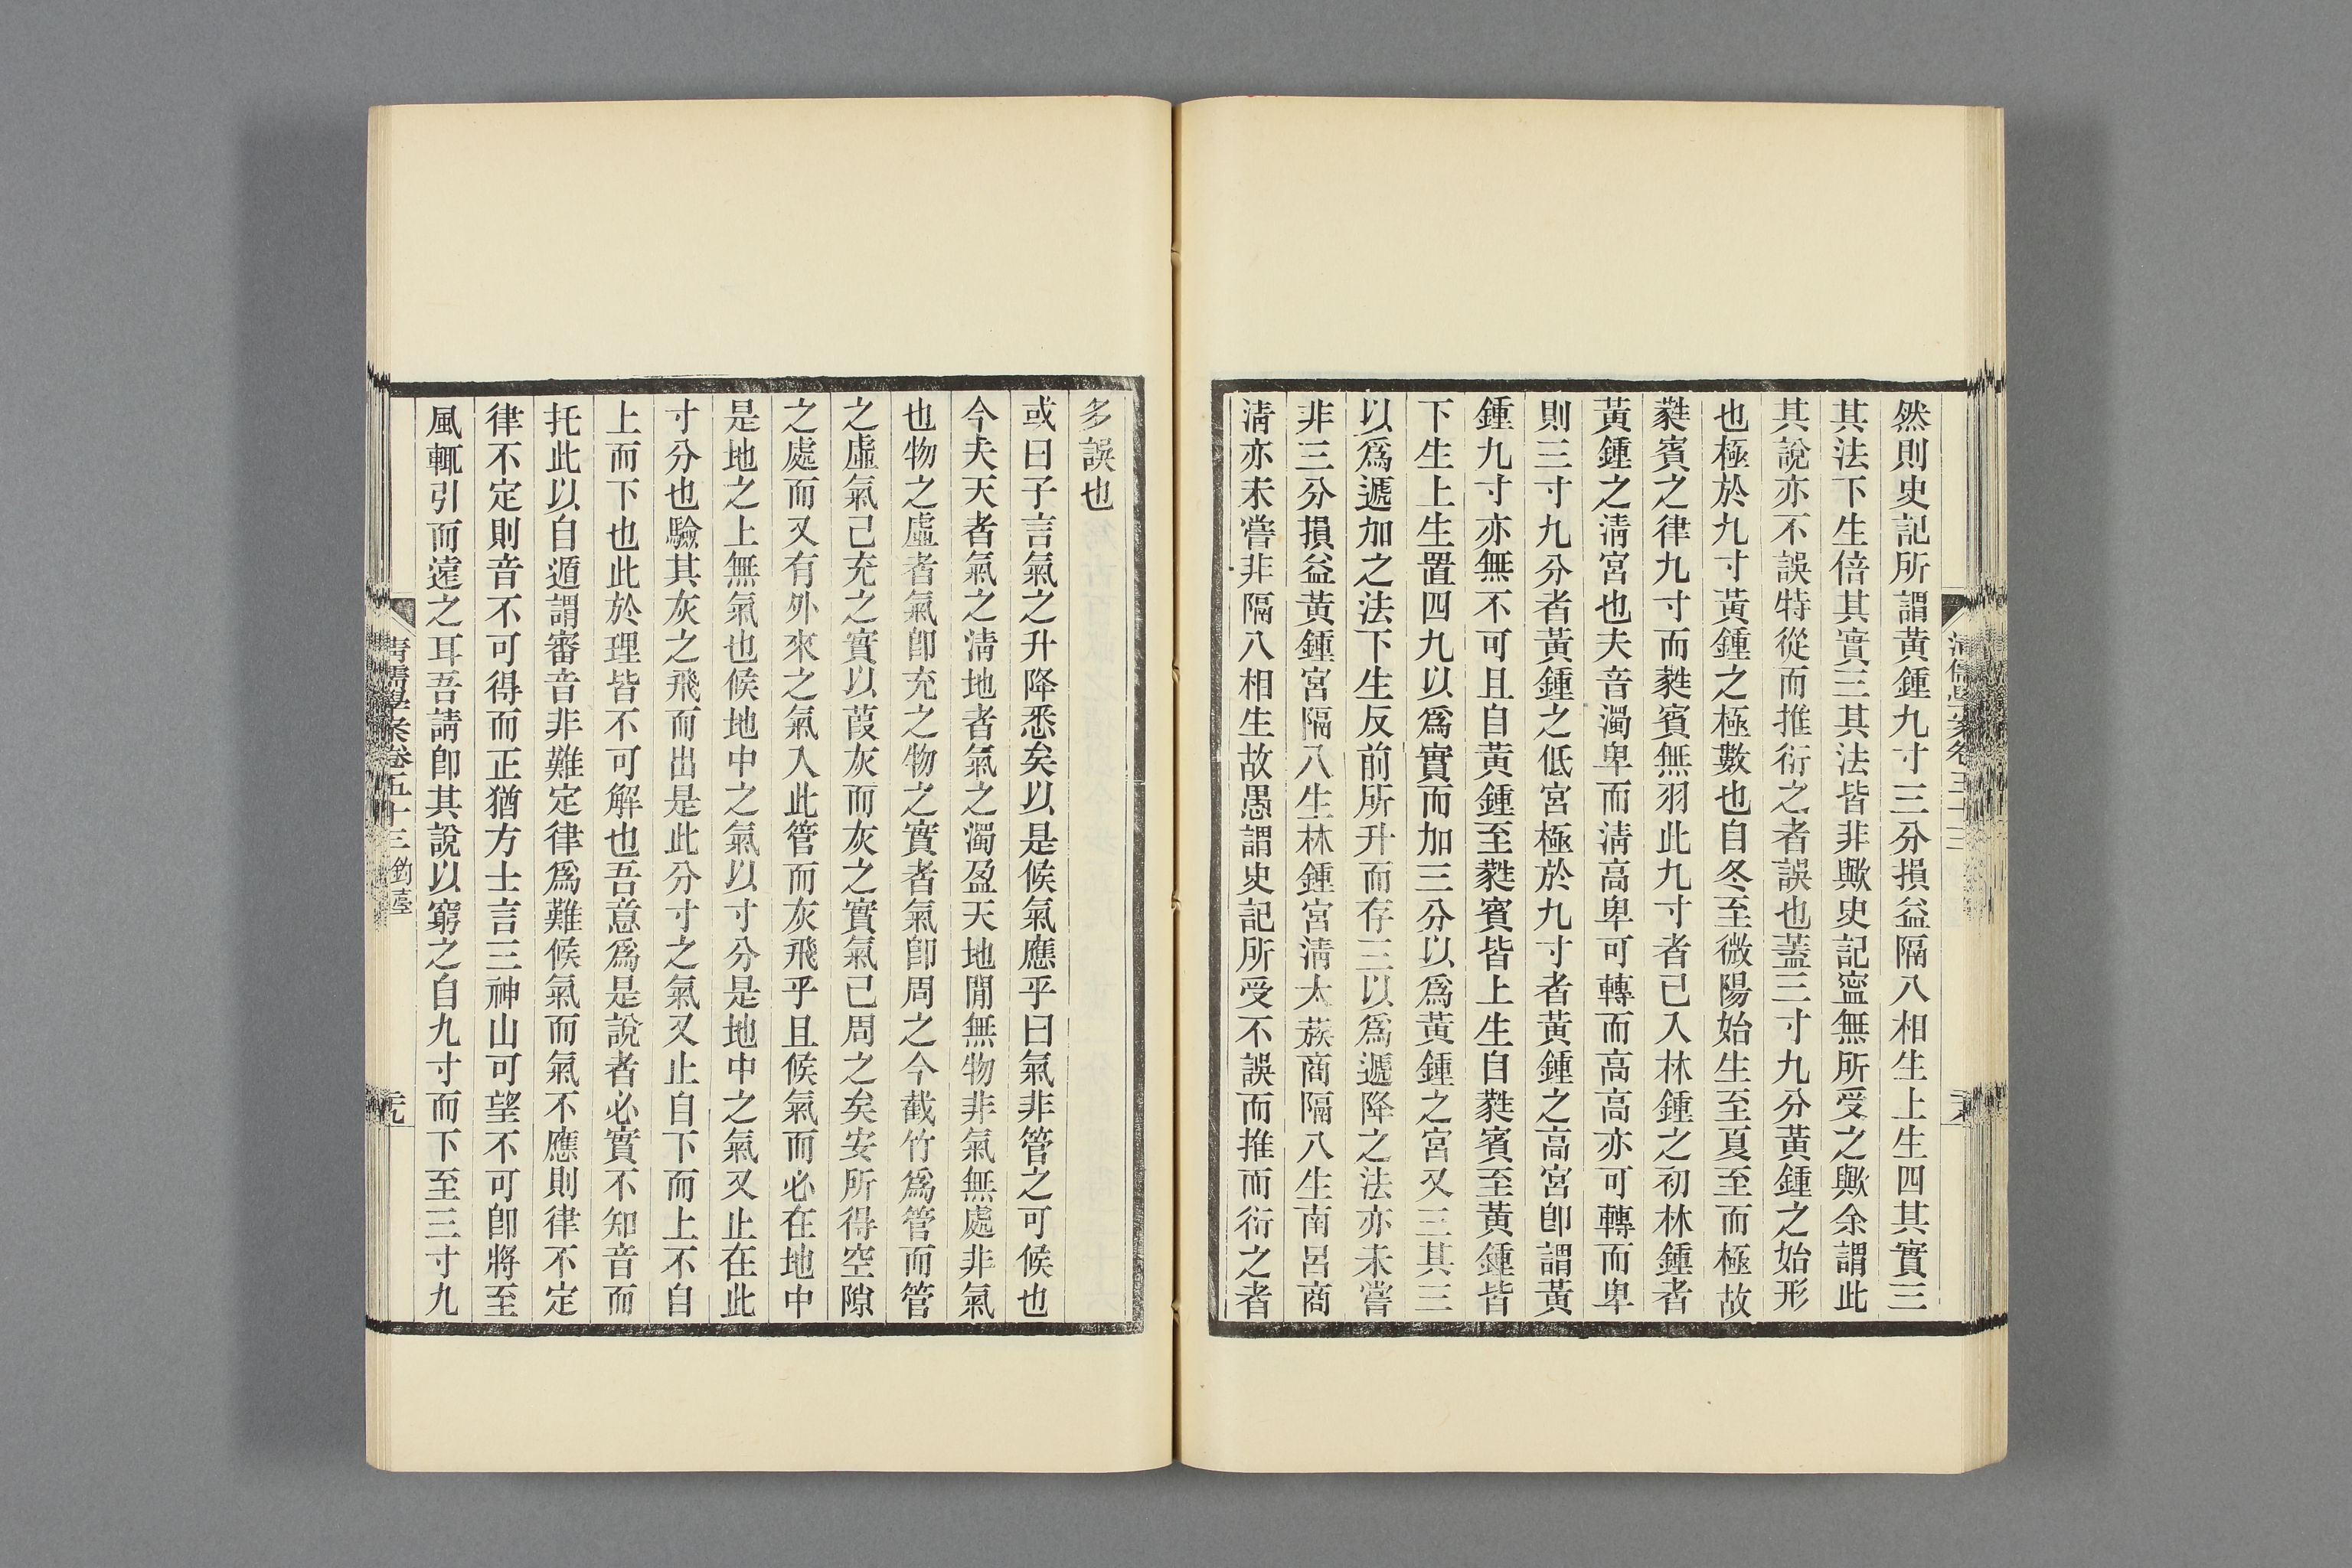 然則史記所謂黃鍾九寸三分損益隔八相生上生四其實三
其法下生倍其實三其法皆非歟史記寍無所受之歟余謂此
其說亦不誤特從而推衍之者誤也蓋三寸九分黃鍾之始形
也極於九寸黃鍾之極數也自冬至微陽始生至夏至而極故
蕤賓之律九寸而蕤賓無羽此九寸者已入林鍾之初林鍾者
黃鍾之淸宮也夫音濁卑而淸高卑可轉而高高亦可轉而卑
則三寸九分者黃鍾之低宮極於九寸者黃鍾之高宮卽謂黃
鍾九寸亦無不可且自黃鍾至蕤賓皆上生自蕤賓至黃鍾皆
下生上生置四九以爲實而加三分以爲黃鍾之宮又三其三
以爲遞加之法下生反前所升而存三以爲遞降之法亦未嘗
非三分損益黃鍾宮隔八生林鍾宮淸太蔟商隔八生南呂商
淸亦未嘗非隔八相生故愚謂史記所受不誤而推而衍之者
多誤也
或曰子言氣之升降悉矣以是候氣應乎曰氣非管之可候也
今夫天者氣之淸地者氣之濁盈天地閒無物非氣無處非氣
也物之虛者氣卽充之物之實者氣卽周之今截竹爲管而管
之虛氣已充之實以葭灰而灰之實氣已周之矣安所得空隙
之處而又有外來之氣入此管而灰飛乎且候氣而必在地中
是地之上無氣也候地中之氣以寸分是地中之氣又止在此
寸分也驗其灰之飛而出是此分寸之氣又止自下而上不自
上而下也此於理皆不可解也吾意爲是說者必實不知音而
托此以自遁謂審音非難定律爲難候氣而氣不應則律不定
律不定則音不可得而正猶方士言三神山可望不可卽將至
風輒引而遠之耳吾請卽其說以窮之自九寸而下至三寸九
淸儒學案卷五十三 釣臺